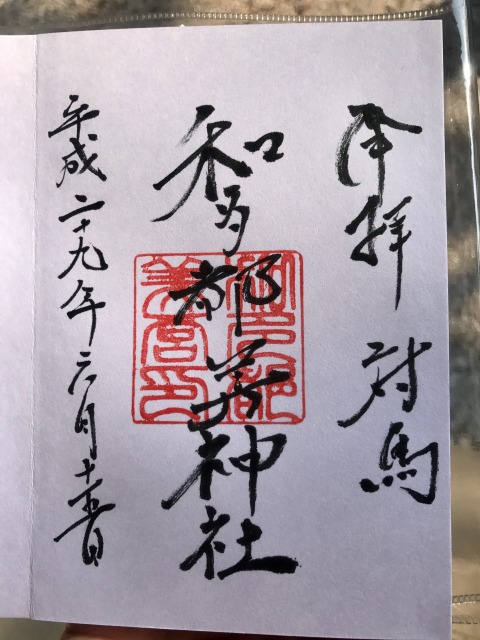 奉拝 対馬
和多都美神社
平成二十九年六月十五日